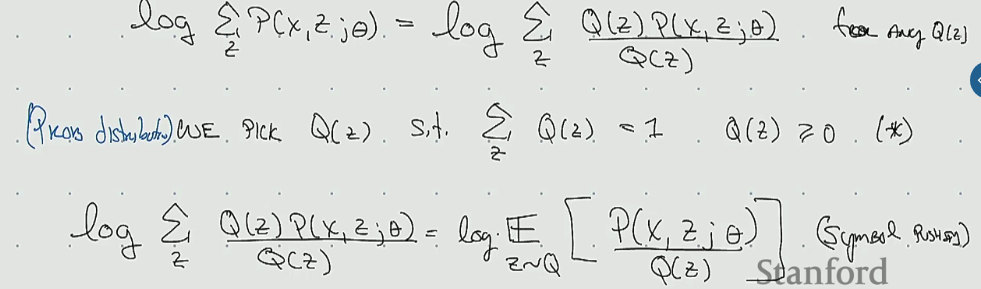 log Σ_z P(x,z;θ) = log Σ_z Q(z)P(x,z;θ) / Q(z) for Any Q(z)
(Prob distribution) WE PICK Q(z) s.t. Σ_z Q(z) = 1 Q(z) ≥ 0 (*)
log Σ_z Q(z)P(x,z;θ) / Q(z) = log E_{z~Q} [ P(x,z;θ) / Q(z) ] (Symbol Pushing)
Stanford